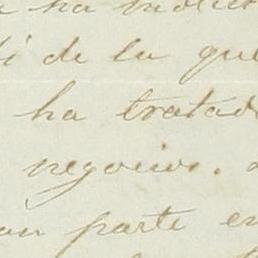 ha
di de la que
ha tratad
negocios.
parte en